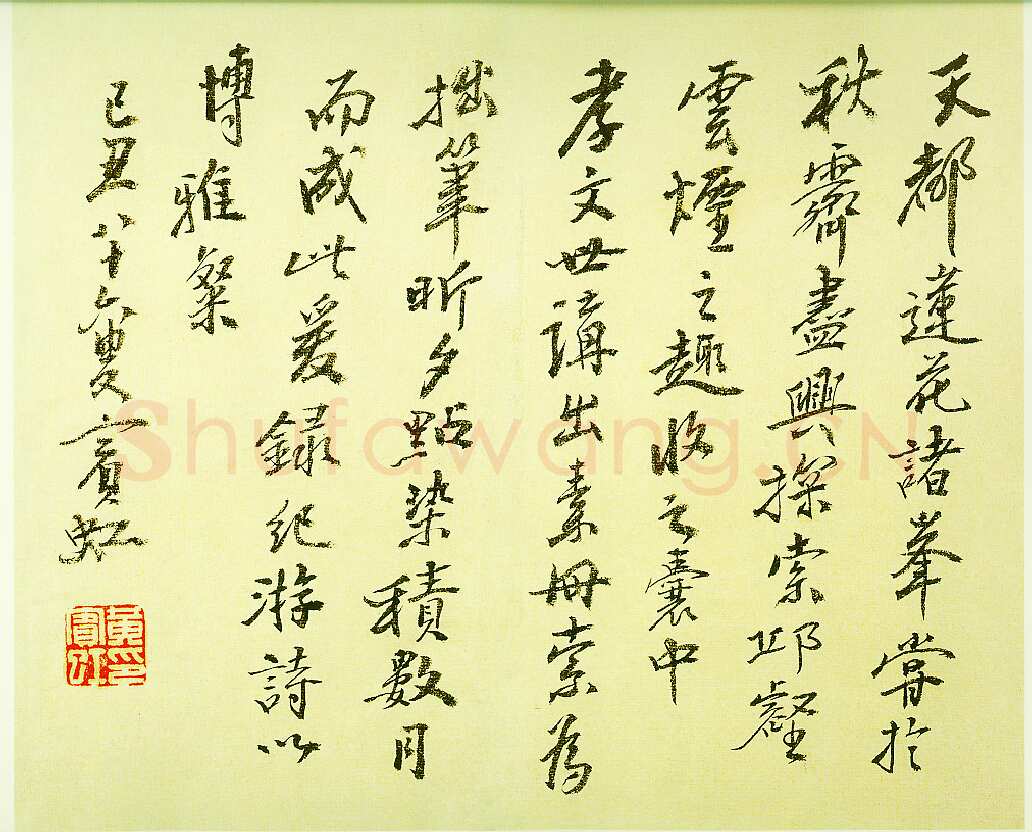 天都蓮花諸峯嘗於
秋霽盡興探索邱壑
雲煙之趣收之囊中
孝文世講出素冊索為
拙筆昕夕點染積數月
而成此爰錄紀游詩以
博雅粲
己丑八十六叟賓虹
黃賓虹印
Shufawang.CN